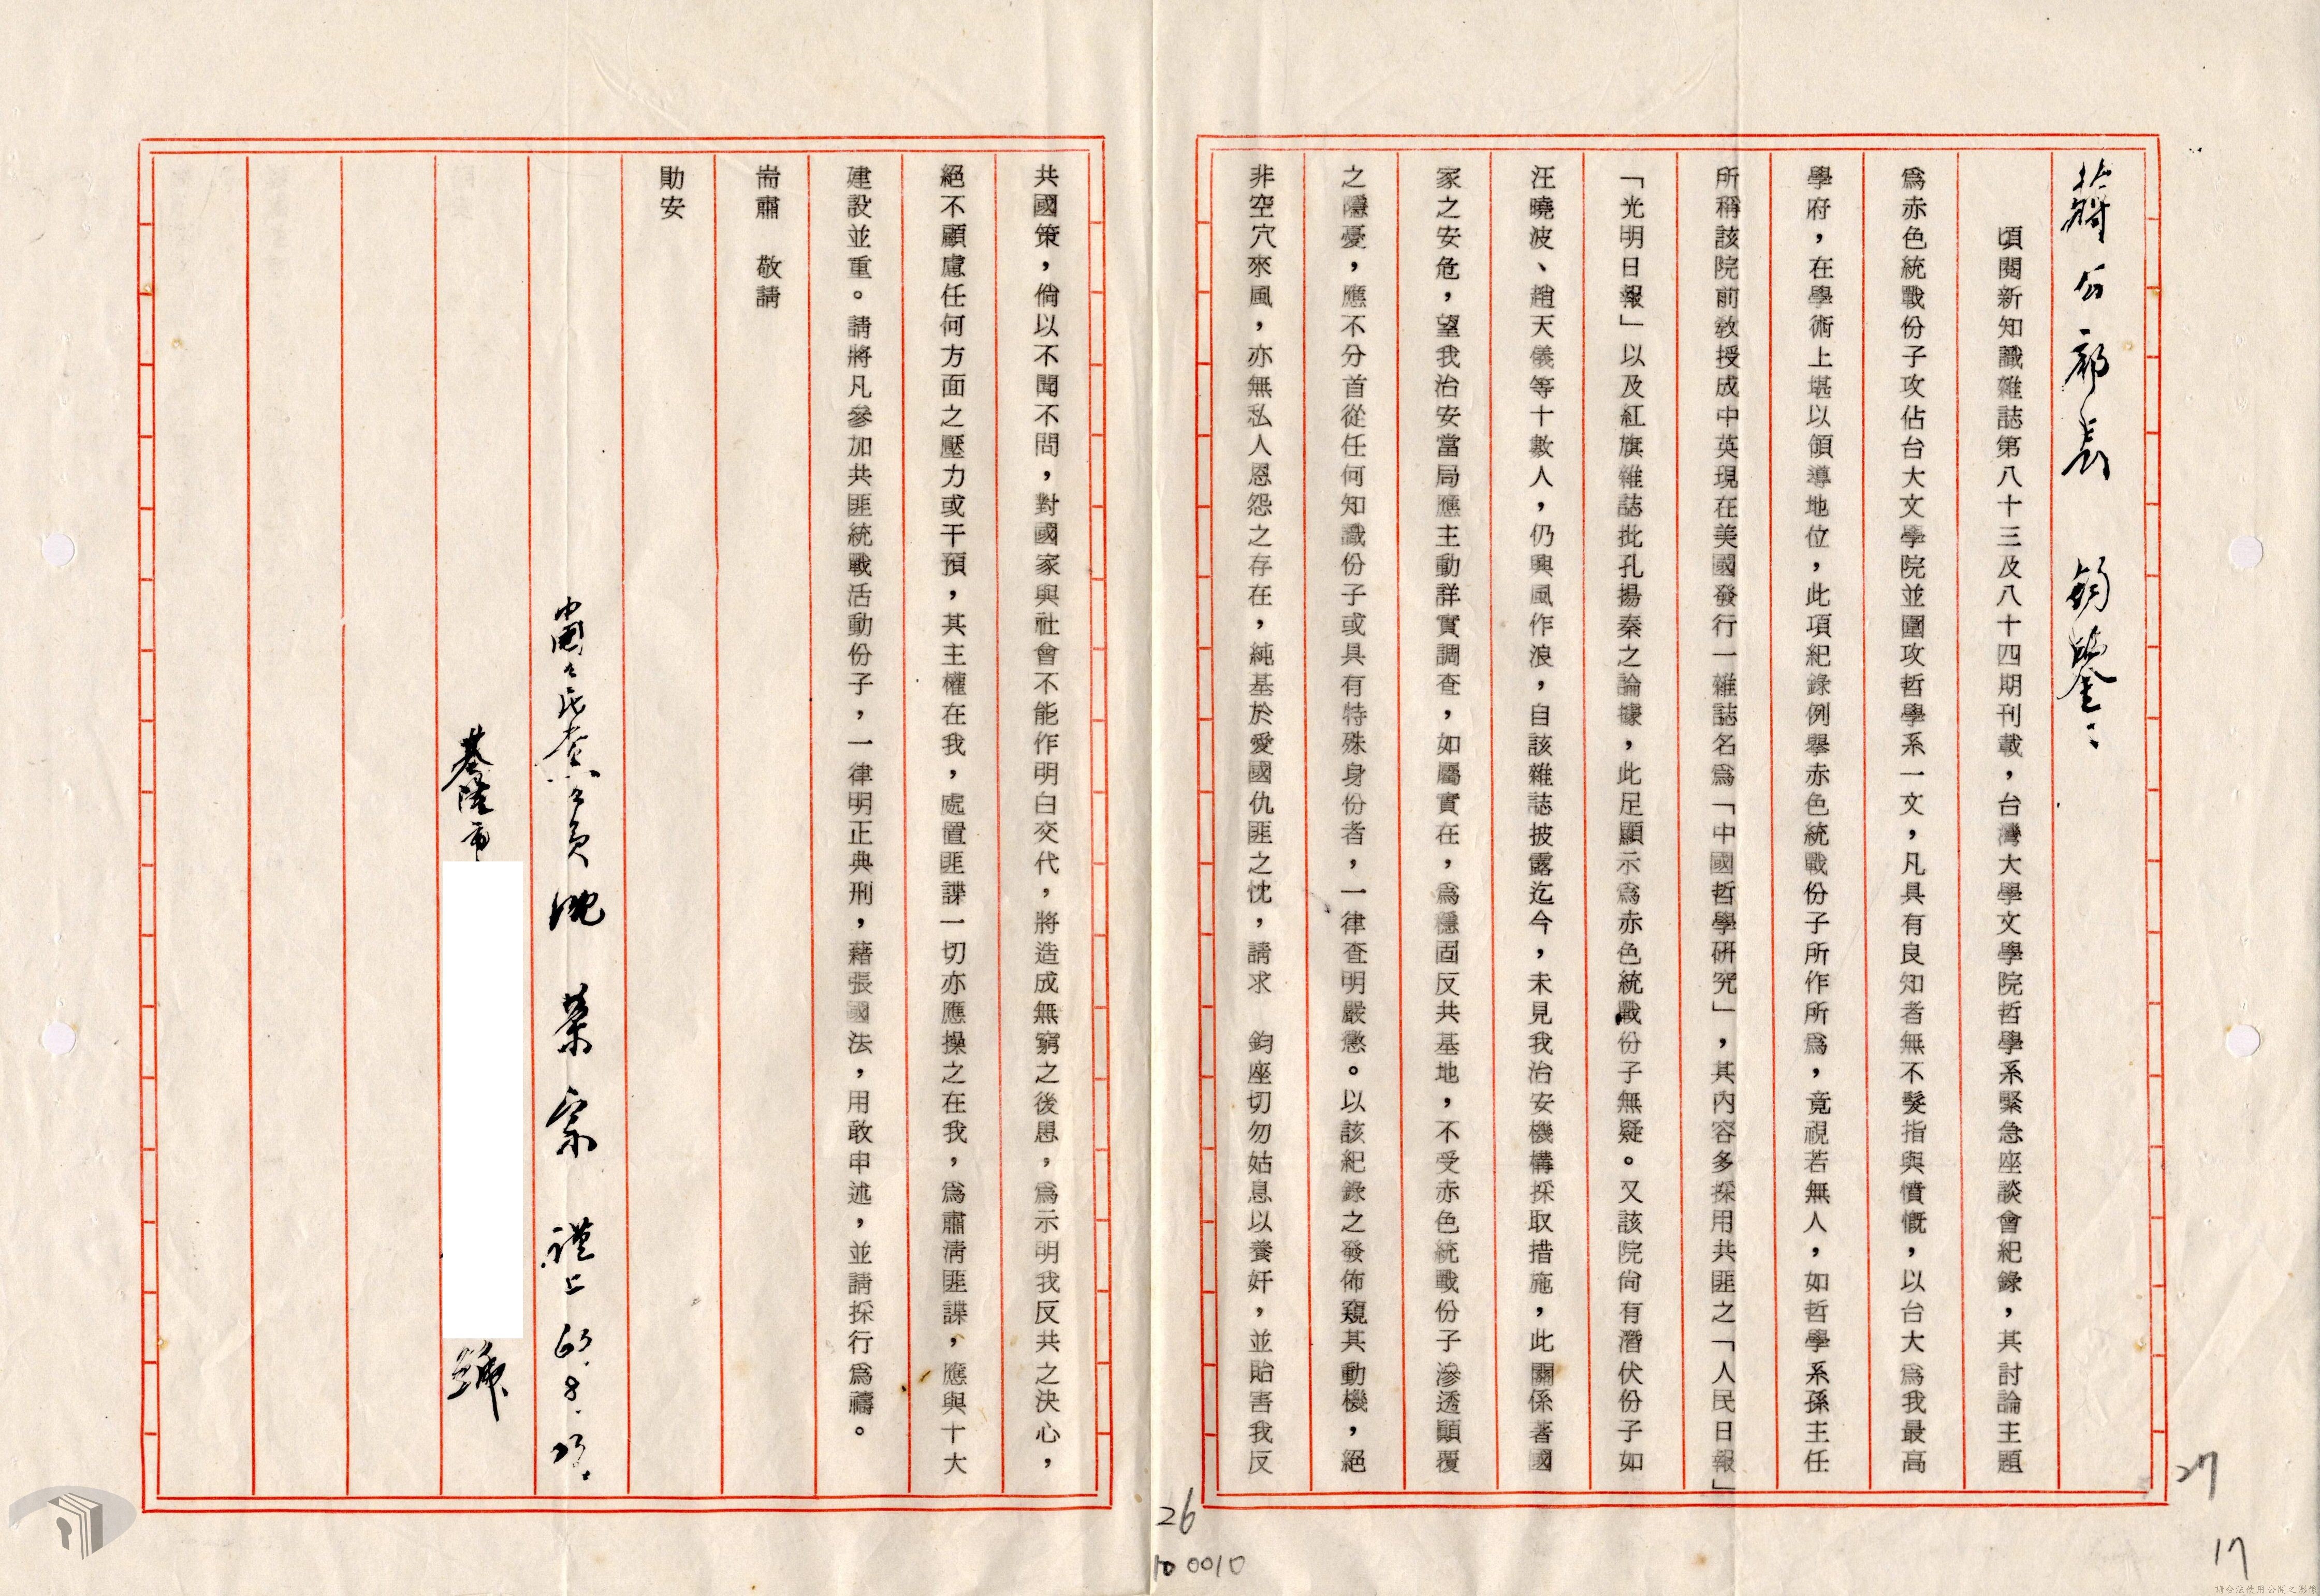 蔣公部長　鈞鑒：
頃閱新知識雜誌第八十三及八十四期刊載，台灣大學文學院哲學系緊急座談會紀錄，其討論主題
爲赤色統戰份子攻佔台大文學院並圍攻哲學系一文，凡具有良知者無不髮指與憤慨，以台大爲我最高
學府，在學術上堪以領導地位，此項紀錄例舉赤色統戰份子所作所爲，竟視若無人，如哲學系孫主任
所稱該院前敎授成中英現在美國發行一雜誌名爲「中國哲學硏究」，其內容多採用共匪之「人民日報」
「光明日報」以及紅旗雜誌批孔揚秦之論據，此足顯示爲赤色統戰份子無疑。又該院尙有潛伏份子如
汪曉波、趙天儀等十數人，仍興風作浪，自該雜誌披露迄今，未見我治安機構採取措施，此關係著國
家之安危，望我治安當局應主動詳實調查，如屬實在，爲穩固反共基地，不受赤色統戰份子滲透顚覆
之隱憂，應不分首從任何知識份子或具有特殊身份者，一律查明嚴懲。以該紀錄之發佈窺其動機，絕
非空穴來風，亦無私人恩怨之存在，純基於愛國仇匪之忱，請求　鈞座切勿姑息以養奸，並貽害我反
共國策，倘以不聞不問，對國家與社會不能作明白交代，將造成無窮之後患，爲示明我反共之決心，
絕不顧慮任何方面之壓力或干預，其主權在我，處置匪諜一切亦應操之在我，爲肅淸匪諜，應與十大
建設並重。請將凡參加共匪統戰活動份子，一律明正典刑，藉張國法，用敢申述，並請採行爲禱。
耑肅　敬請
勛安
沈榮宗　謹上 63.8.23.
基隆市
號
26
10 0010
27
17
請合法使用公開之影像